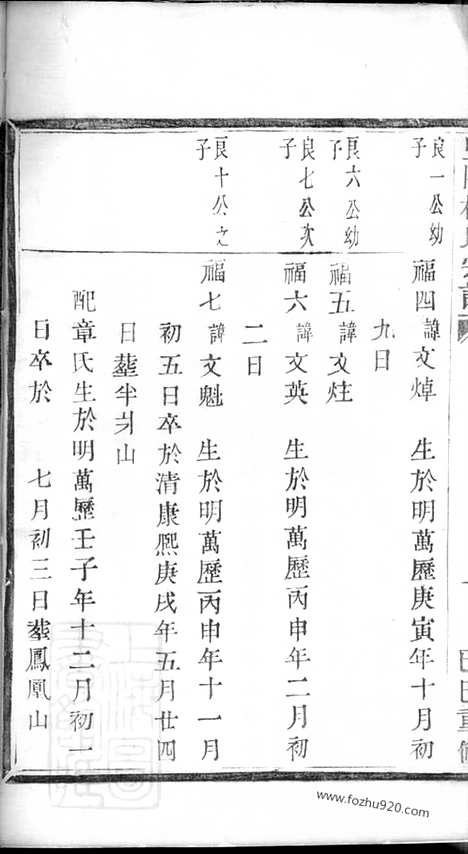 良一公幼子
福四諱文焯 生於明萬歷庚寅年十月初
九日
良六公幼子
福五諱文炷
良七公次子
福六諱文英 生於明萬歷丙申年二月初
二日
良十公之子
福七諱文魁 生於明萬歷丙申年十一月
初五日卒於清康熙庚戌年五月廿四
日塟半爿山
配章氏生於明萬歷壬子年十二月初一
日卒於 七月初三日塟鳳凰山
www.fozhu920.com